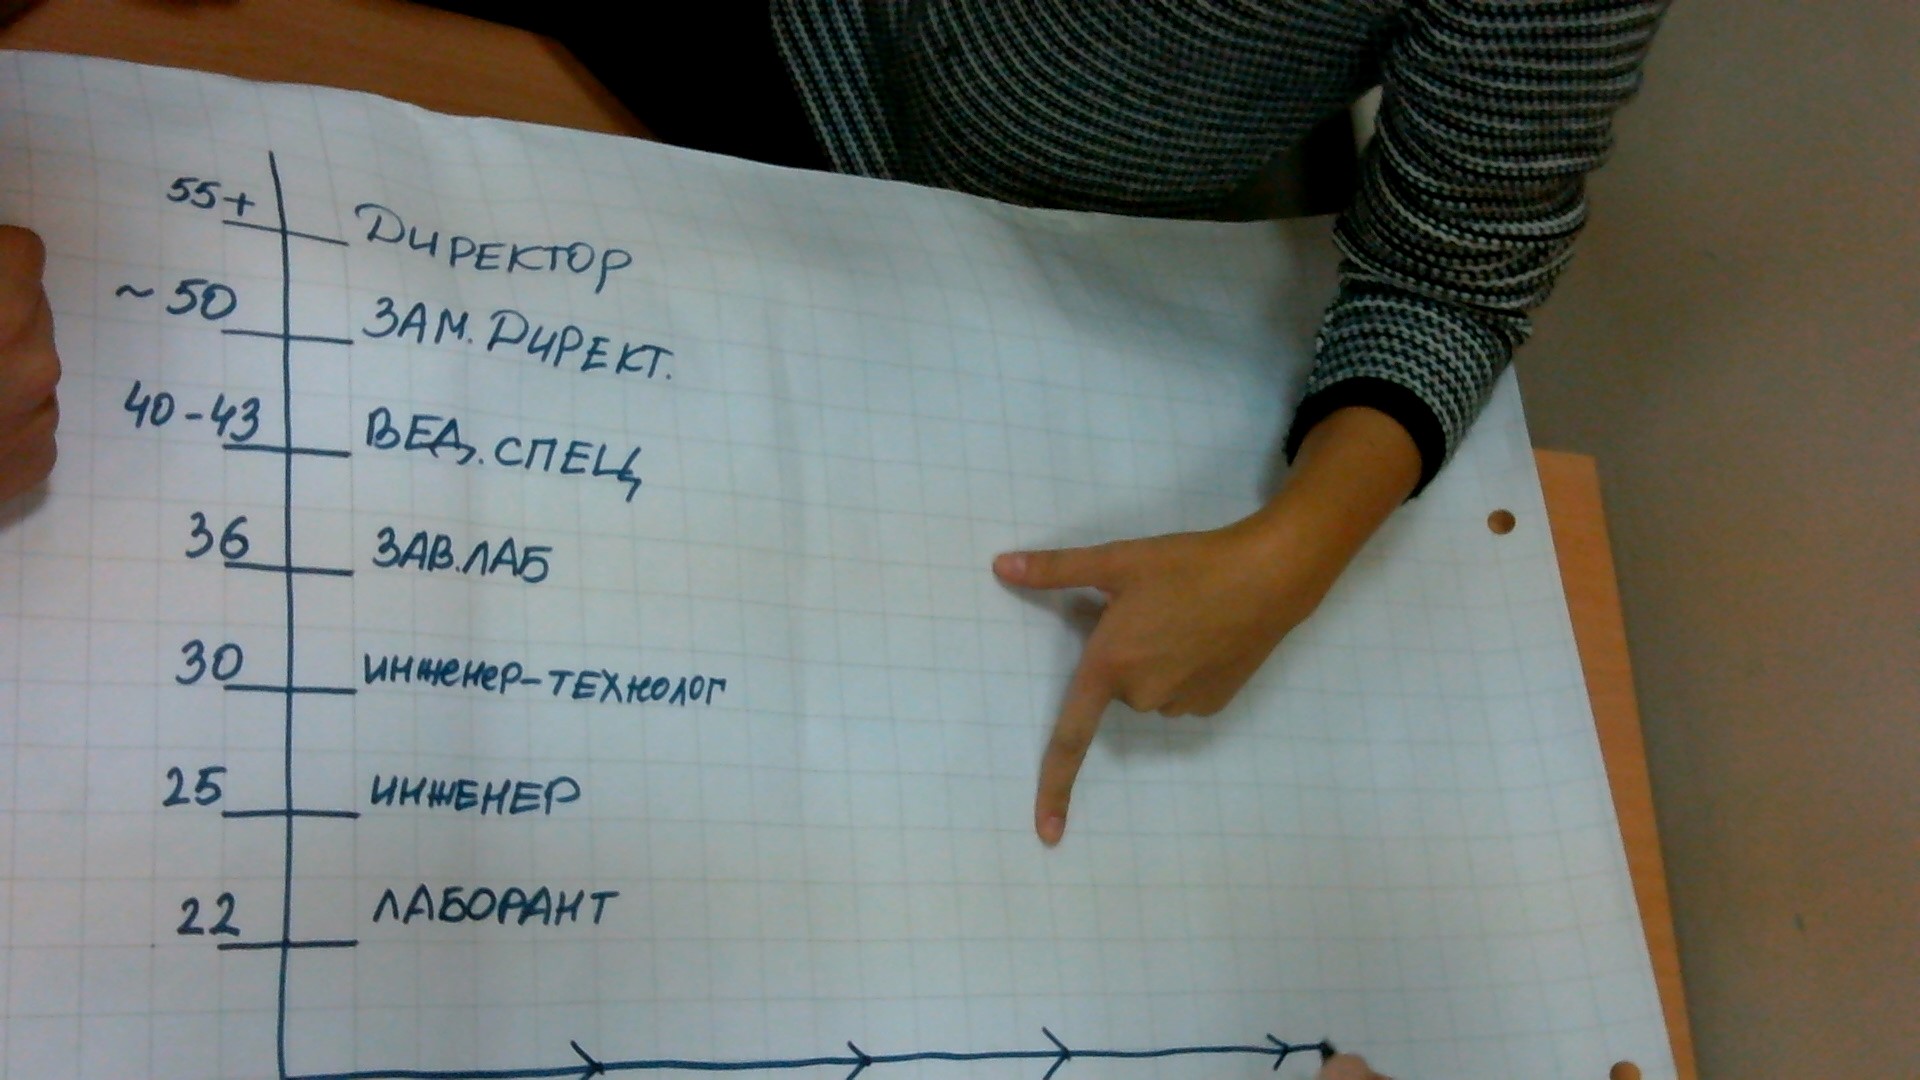 55+ ДИРЕКТОР
~50 ЗАМ. ДИРЕКТ.
40-43 ВЕД. СПЕЦ
36 ЗАВ.ЛАБ
30 ИНЖЕНЕР-ТЕХНОЛОГ
25 ИНЖЕНЕР
22 ЛАБОРАНТ